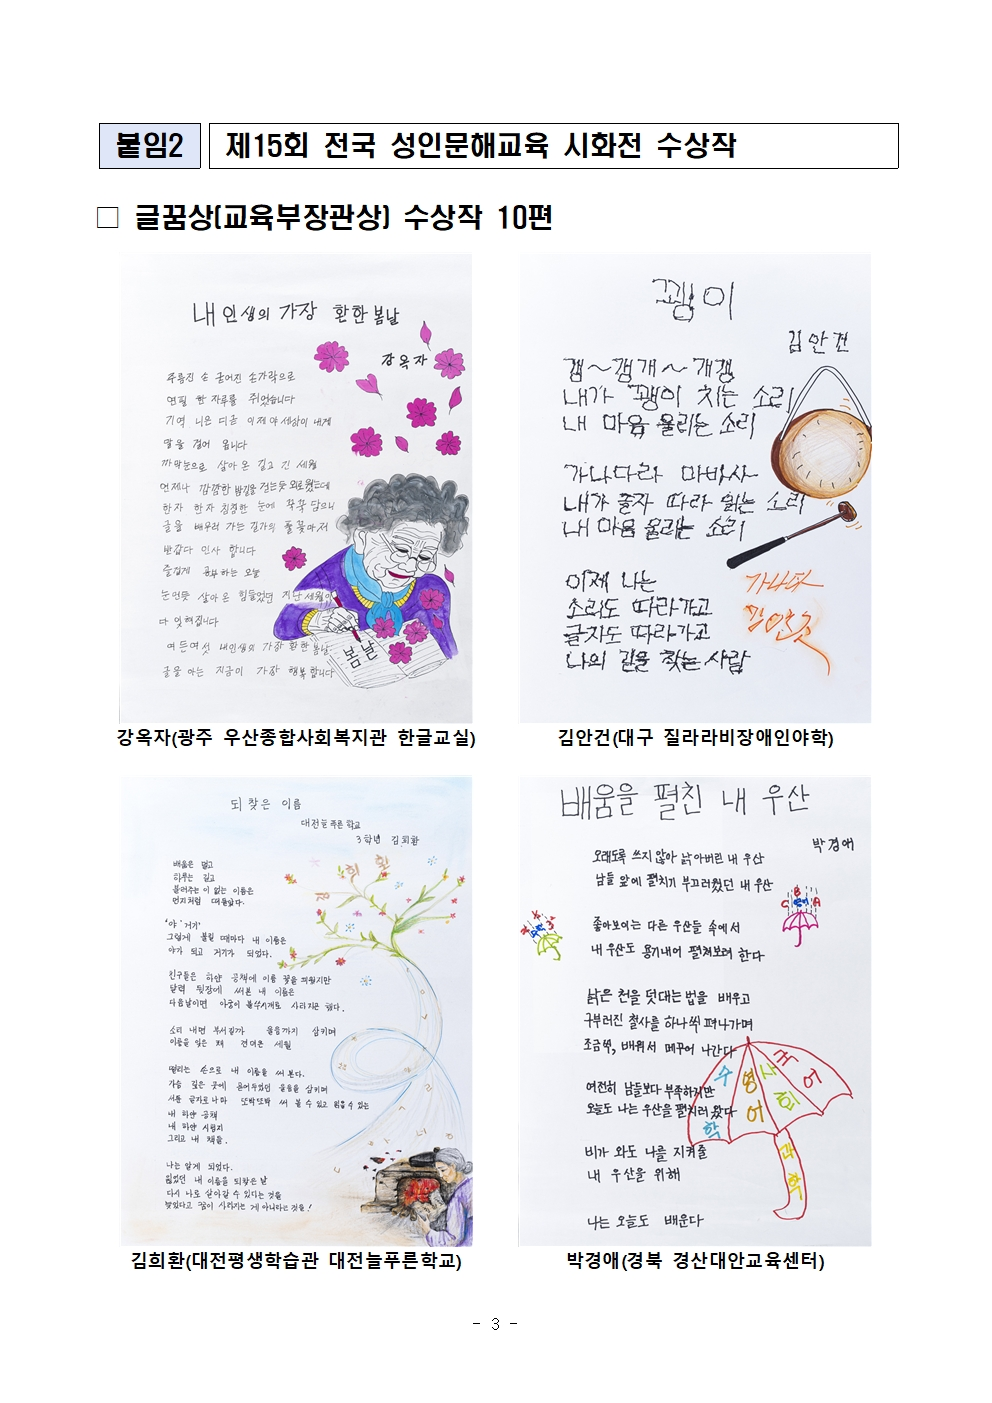 붙임2
제15회 전국 성인문해교육 시화전 수상작
□ 글꿈상(교육부장관상) 수상작 10편
내 인생의 가장 환한 봄날
강옥자
주름진 손 굳어진 손가락으로
연필 한 자루를 쥐었습니다
기역 니은 디귿 이제야 세상이 내게
말을 걸어 옵니다
까막눈으로 살아온 길고 긴 세월
언제나 깜깜한 밤길을 걷는듯 외로웠는데
한자 한자 침침한 눈에 꾹꾹 담으니
글을 배우러 가는 길가의 풀꽃마저
반갑다 인사 합니다
즐겁게 공부하는 오늘
눈먼듯 살아온 힘들었던 지난 세월이
다 잊혀집니다
여든여섯 내인생의 가장 환한 봄날
글을 아는 지금이 가장 행복합니다
봄날
강옥자(광주 우산종합사회복지관 한글교실)
꽹이
김안건
갬~갬개~개갱
내가 꽹이 치는 소리
내 마음 울리는 소리
가나다라 마바사
내가 글자 따라 읽는 소리
내 마음 울리는 소리
이제 나는
소리도 따라가고
글자도 따라가고
나의 길을 찾는 사람
가나다
김안건(대구 질라라비장애인야학)
되찾은 이름
대전늘푸른학교
3학년 김희환
김희환
배움은 멀고
하루는 길고
불러주는 이 없는 이름은
먼지처럼 떠돌았다.
'야' '거기'
그렇게 불릴 때마다 내 이름은
야가 되고 거기가 되었다.
친구들은 하얀 공책에 이름 꽃을 피웠지만
달력 뒷장에 써본 내 이름은
다음날이면 아궁이 불쏘시개로 사라지곤 했다.
소리 내면 부서질까 울음까지 삼키며
이름을 잊은 채 견뎌온 세월
떨리는 손으로 내 이름을 써 본다.
가슴 깊은 곳에 묻어두었던 울음을 삼키며
서툰 글자로나마 또박또박 써 볼 수 있고 읽을 수 있는
내 하얀 공책
내 하얀 시험지
그리고 내 책들.
나는 알게 되었다.
잃었던 내 이름을 되찾은 날
다시 나로 살아갈 수 있다는 것을
늦었다고 꿈이 사라지는 게 아니라는 것을!
김희환(대전평생학습관 대전늘푸른학교)
배움을 펼친 내 우산
박경애
오래도록 쓰지 않아 낡아버린 내 우산
남들 앞에 펼치기 부끄러웠던 내 우산
좋아보이는 다른 우산들 속에서
내 우산도 용기내어 펼쳐보려 한다
낡은 천을 덧대는 법을 배우고
구부러진 철사를 하나씩 펴나가며
조금씩, 배워서 메꾸어 나간다
여전히 남들보다 부족하지만
오늘도 나는 우산을 펼치러 왔다
비가 와도 나를 지켜줄
내 우산을 위해
나는 오늘도 배운다
수학
영어
사회
국어
과학
박경애(경북 경산대안교육센터)
- 3 -